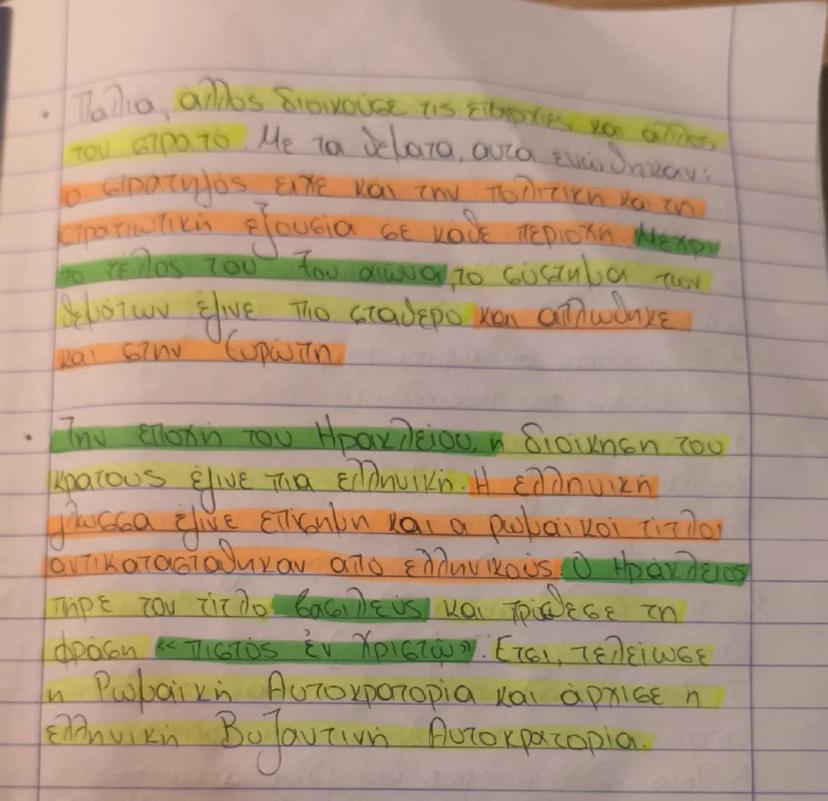 • Παλια, άλλος διοικούσε τις επαρχιες και άλλος
τον στρατό. Με τα θέματα, αυτα ενώθηκαν:
ο στρατηγός ειχε και την πολιτικη και τη
στρατιωτική εξουσία σε καθε περιοχη. Μεχρι
το τέλος του 7ου αιωνα, το σύστημα των
θεμάτων έγινε πιο σταθερο και απλωθηκε
και στην Ευρώπη.
• Την εποχή του Ηρακλείου, η διοίκηση του
κρατους έγινε πια ελληνική. Η ελληνική
γλωσσα έγινε επισημη και α ρωμαϊκοι τίτλοι
αντικαταστάθηκαν απο ελληνικούς. Ο Ηράκλειος
πήρε τον τίτλο βασιλεύς και πρόσθεσε τη
φράση «πιστός ἐν Χριστῷ». Ετσι, τελείωσε
η Ρωμαϊκή Αυτοκρατορία και άρχισε η
ελληνική Βυζαντινή Αυτοκρατορία.